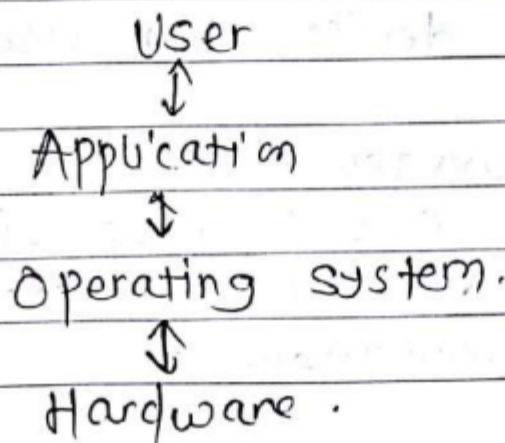 User
Application
Operating system.
Hardware.